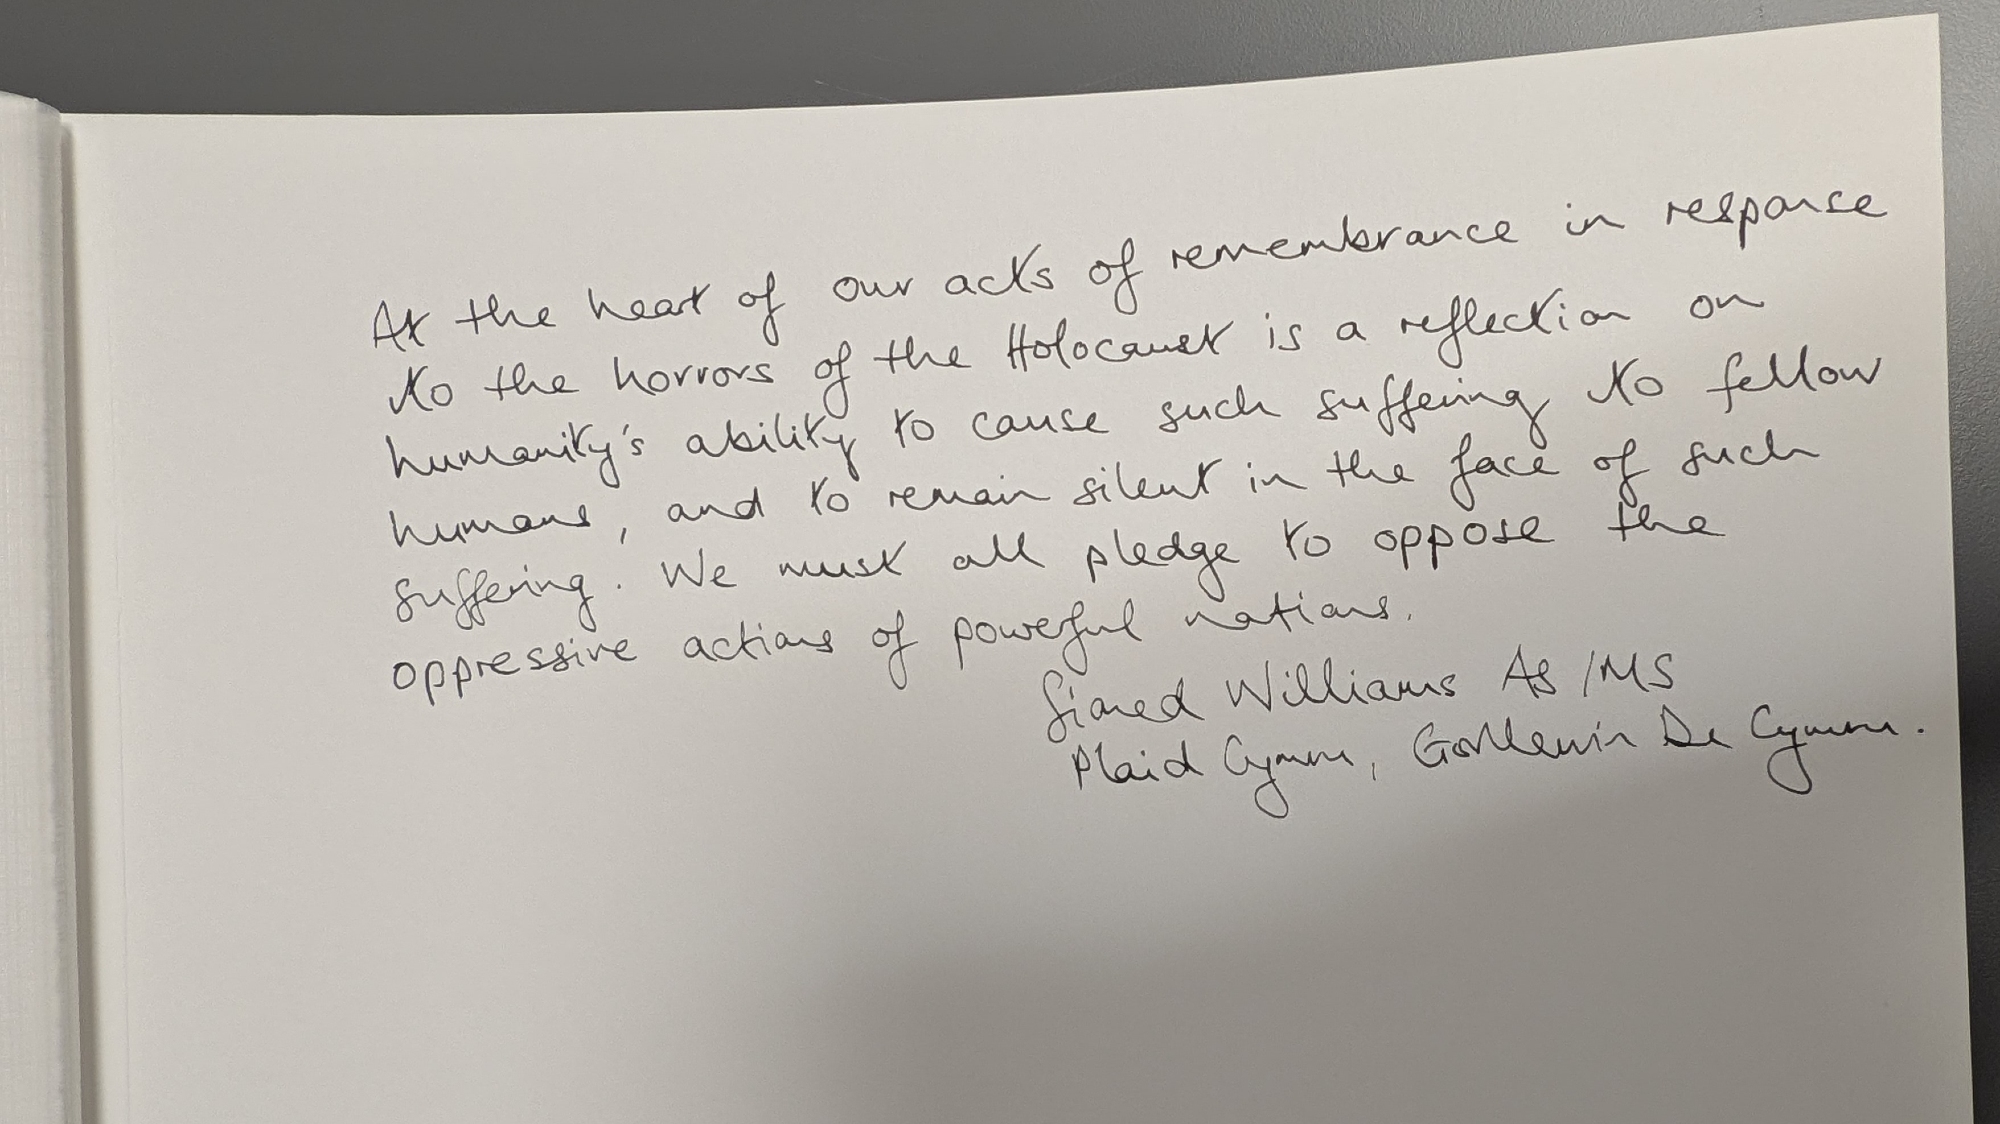 At the heart of our acts of remembrance in response
to the horrors of the Holocaust is a reflection on
humanity's ability to cause such suffering to fellow
humans, and to remain silent in the face of such
suffering. We must all pledge to oppose the
oppressive actions of powerful nations.
Sioned Williams AS/MS
Plaid Cymru, Gorllewin De Cymru.